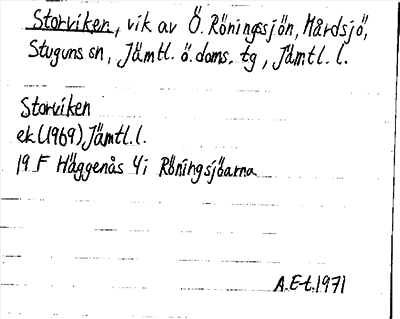 Storviken, vik av Ö. Röningssjön, Mårdsjö,
Stuguns sn, Jämtl. ö. doms. tg, Jämtl. l.
Storviken
ek (1969) Jämtl. l.
19 F Häggenås 4i Röningsjöarna
A.E-t. 1971